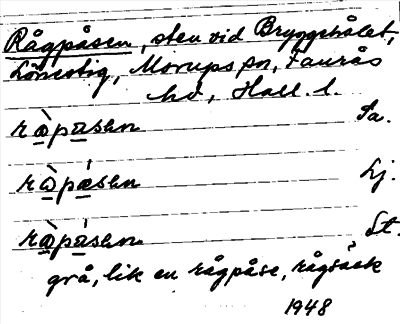 Rågpåsen, sten vid Bryggehålet,
Lönestig, Morups sn, Faurås
hd, Hall. l.
rå̀påsen Sa.
rå̀pǽsen Lj.
rå̀pásen St.
grå, lik en rågpåse, rågsäck
1948